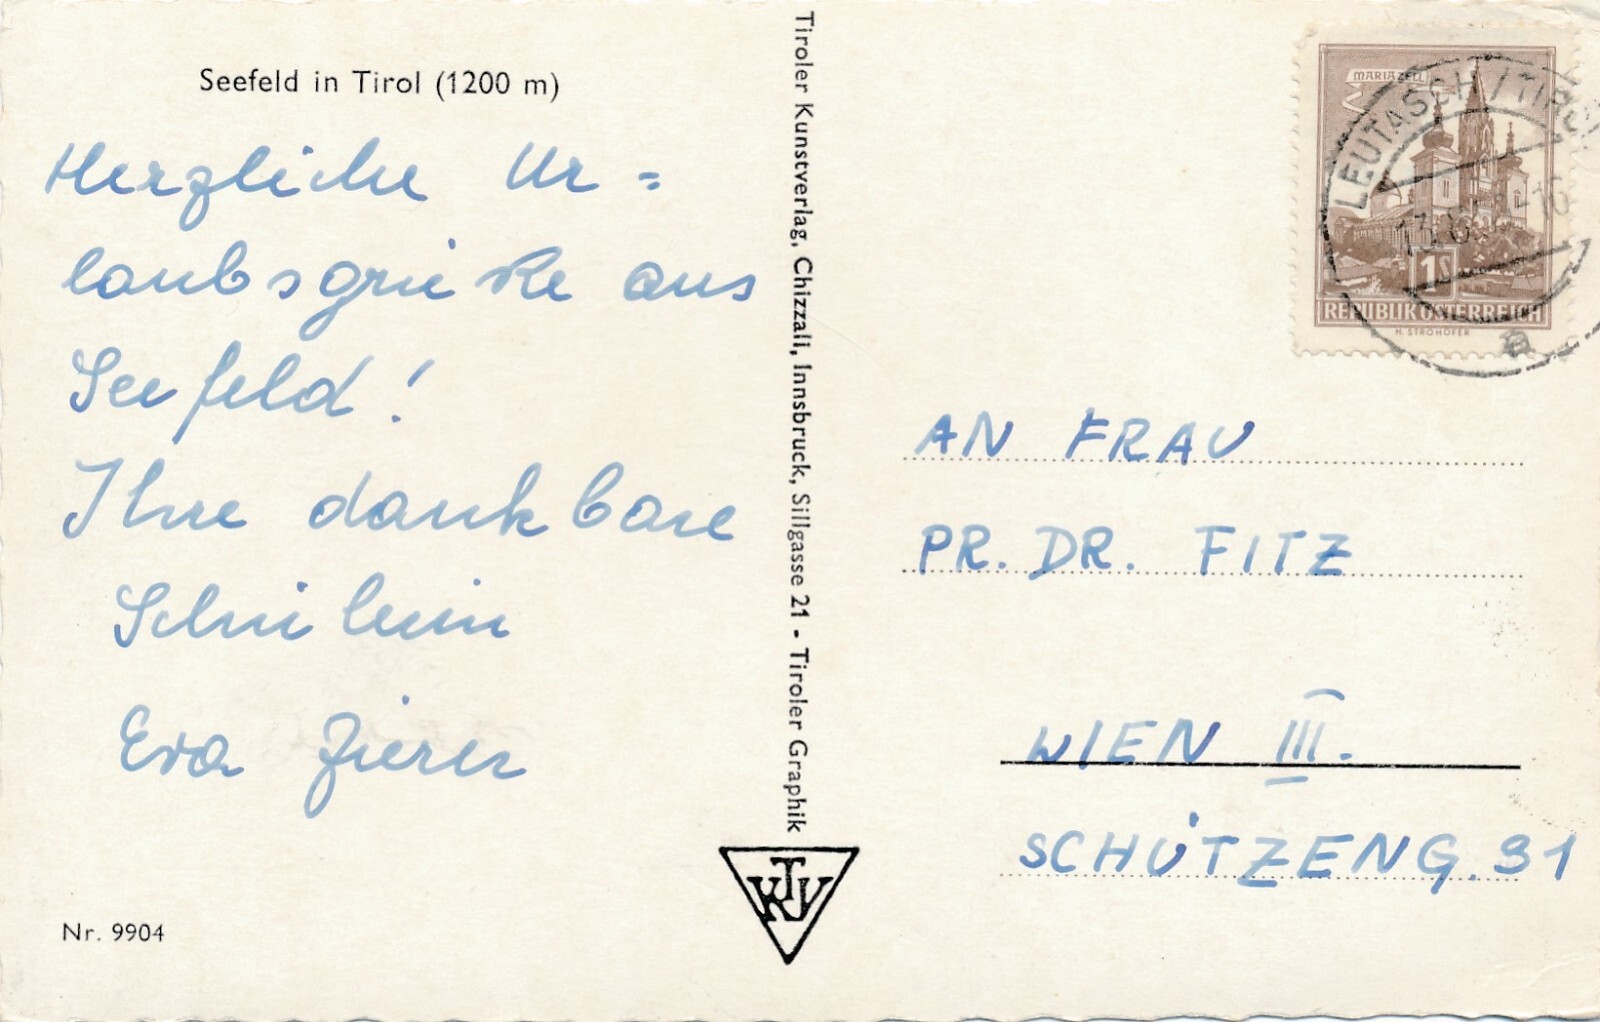 Seefeld in Tirol (1200 m)
Herzliche Ur =
laubsgrüße aus
Seefeld!
Ihre dankbare
Schülerin
Eva Zierer
Nr. 9904
Tiroler Kunstverlag, Chizzali, Innsbruck, Sillgasse 21 - Tiroler Graphik
TKV
MARIAZELL
1S
REPUBLIK ÖSTERREICH
H. STROHOFER
LEUTASCH / TIROL
a
AN FRAU
PR. DR. FITZ
WIEN III.
SCHÜTZENG. 31